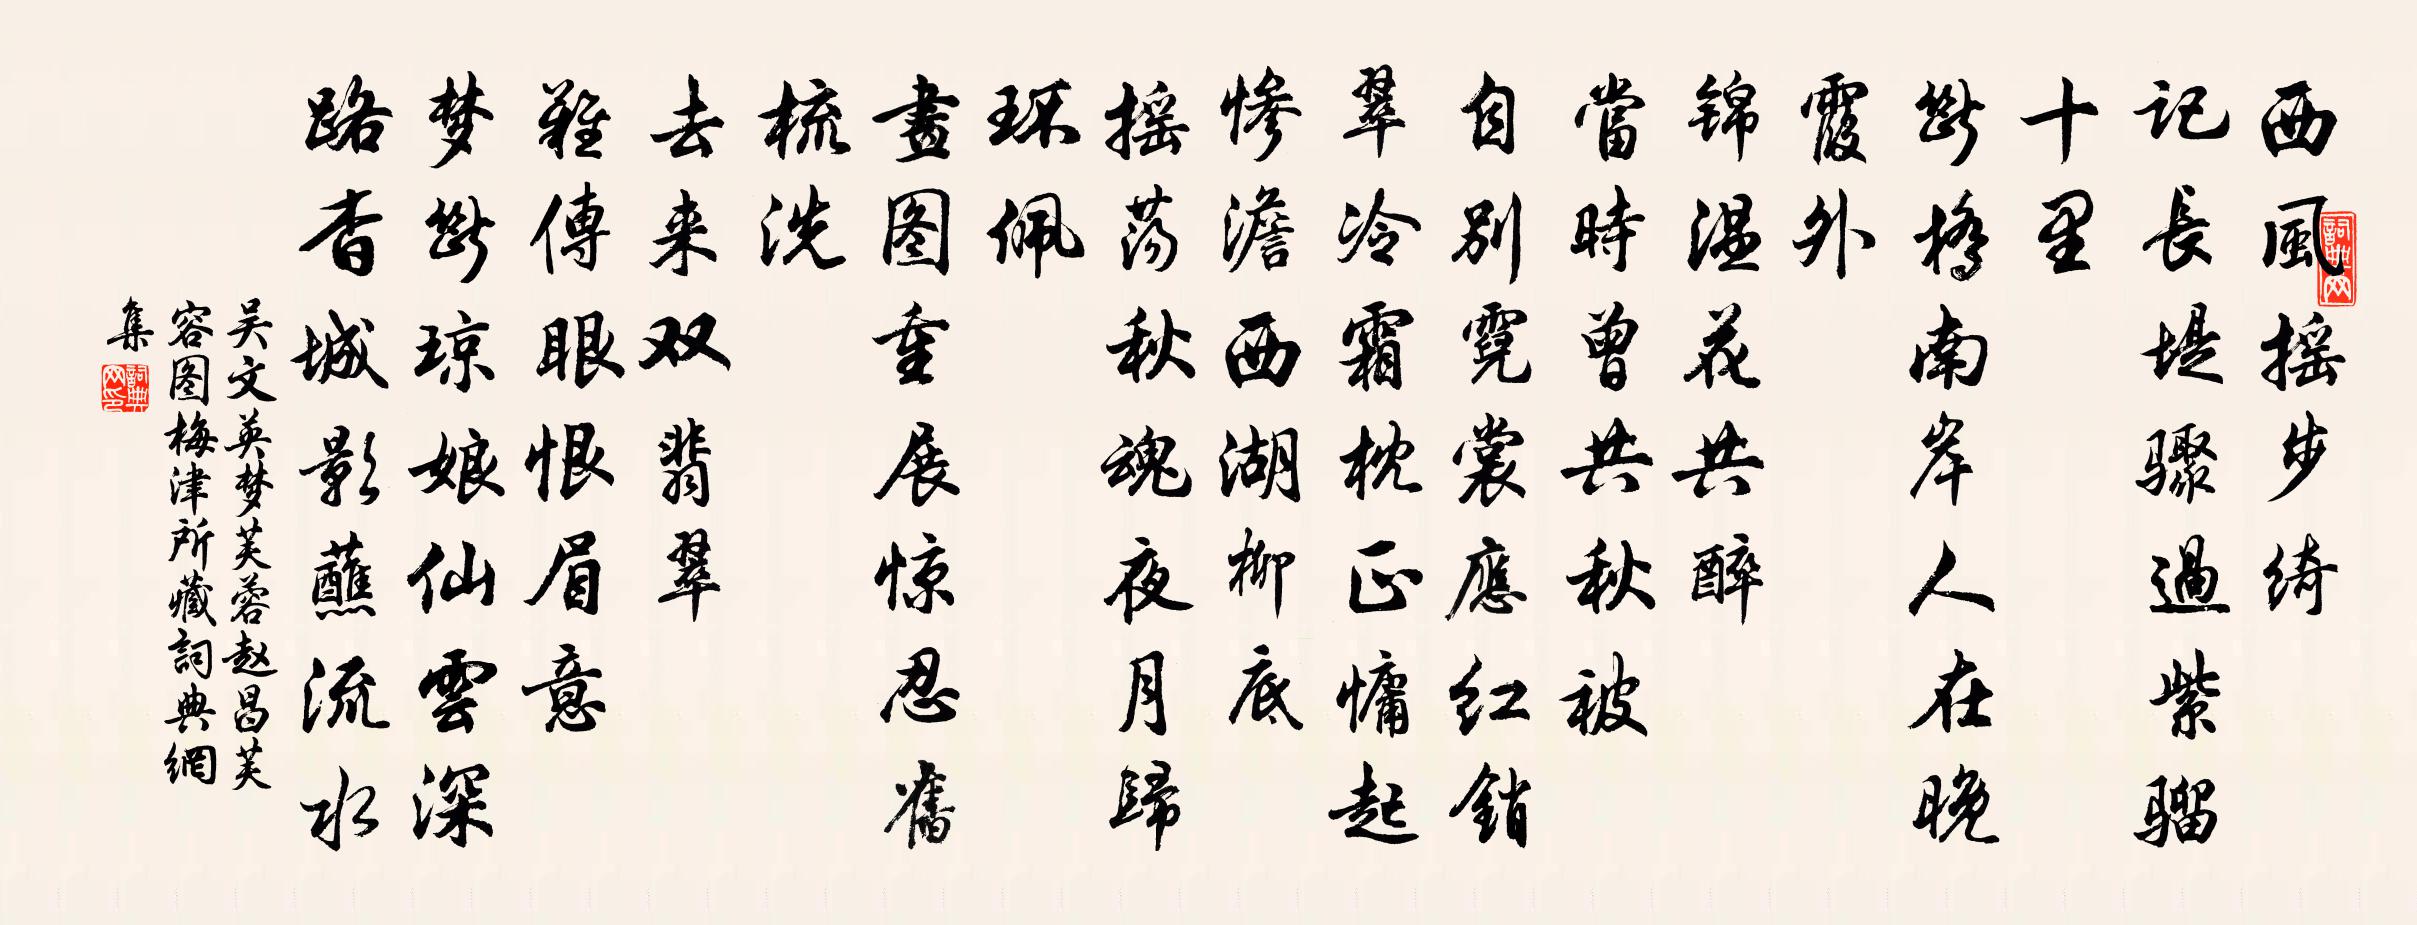 西風摇步绮
記長堤骤過紫骝
十里
断橋南岸人在晚
霞外
锦温花共醉
當時曾共秋被
自别霓裳應红銷
翠冷霜枕正慵起
惨澹西湖柳底
摇荡秋魂夜月歸
环佩
畫图重展惊忍舊
梳洗
去来双翡翠
難傳眼恨眉意
梦断琼娘仙雲深
路杳城影蘸流水
吴文英梦芙蓉赵昌芙
容图梅津所藏詞典網
集
詞典网
詞典网印